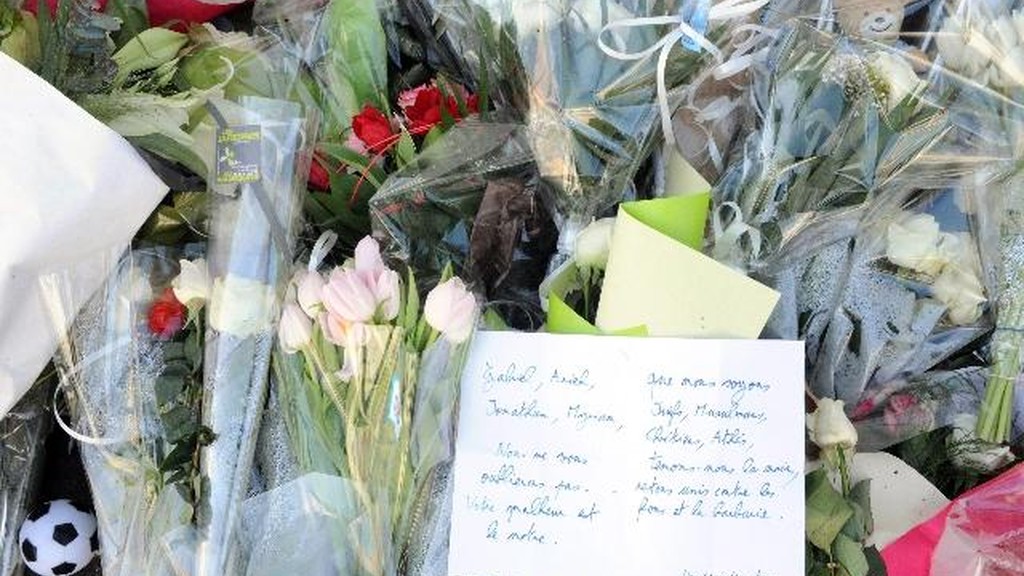 Gabriel, Arieh,
Jonathan, Myriam,
Nous ne vous
oublierons pas.
Votre malheur est
le notre.
que nous soyons
Juifs, Musulmans,
Chrétiens, Athés,
Tenons-nous la main,
restons unis contre les
fous et la barbarie.